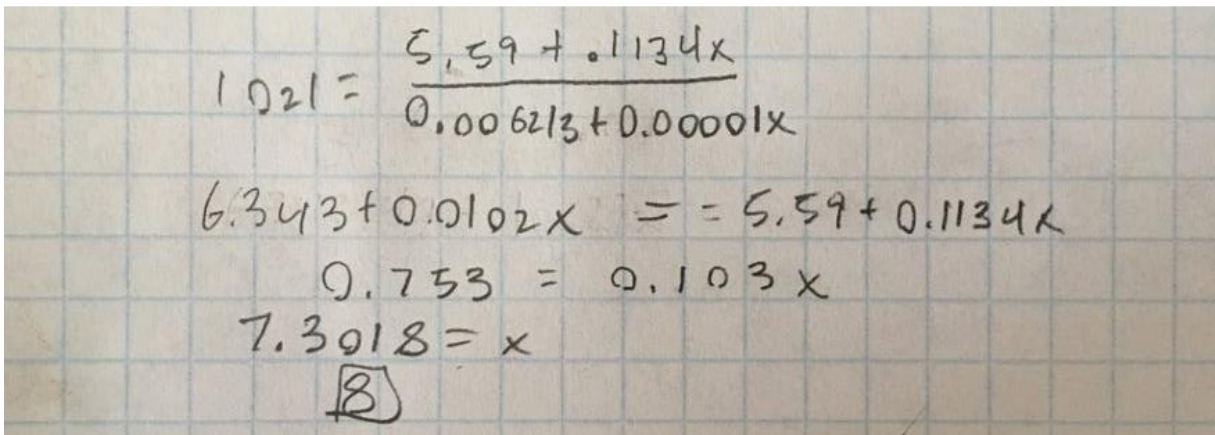 1021 = (5.59 + .1134x) / (0.006213 + 0.00001x)
6.343 + 0.0102x = = 5.59 + 0.1134x
0.753 = 0.103x
7.3018 = x
8